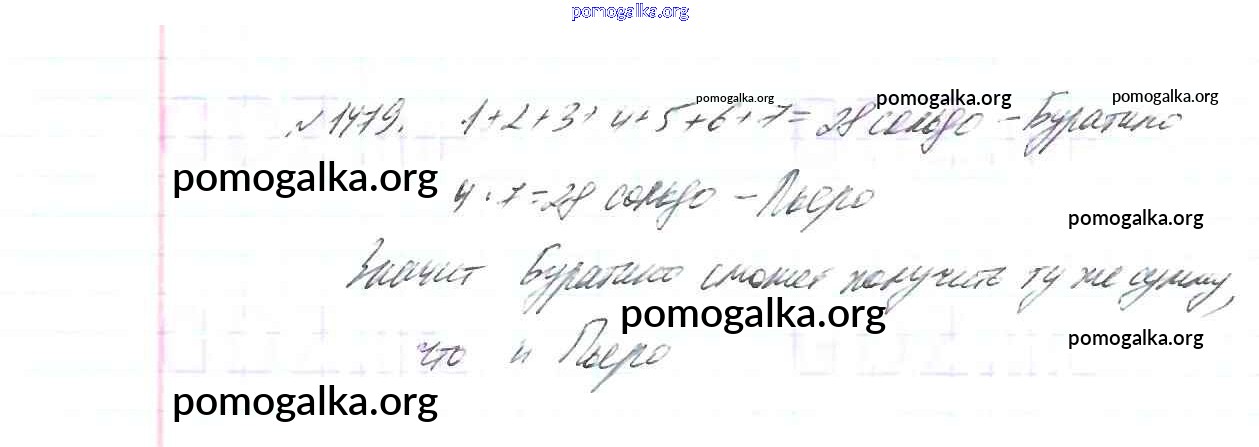 pomogalka.org
№1479. 1+2+3+4+5+6+7=28 сольдо - Буратино
pomogalka.org pomogalka.org pomogalka.org
pomogalka.org
4·7=28 сольдо - Пьеро
pomogalka.org
Значит Буратино сможет получить ту же сумму,
pomogalka.org
pomogalka.org
что и Пьеро
pomogalka.org